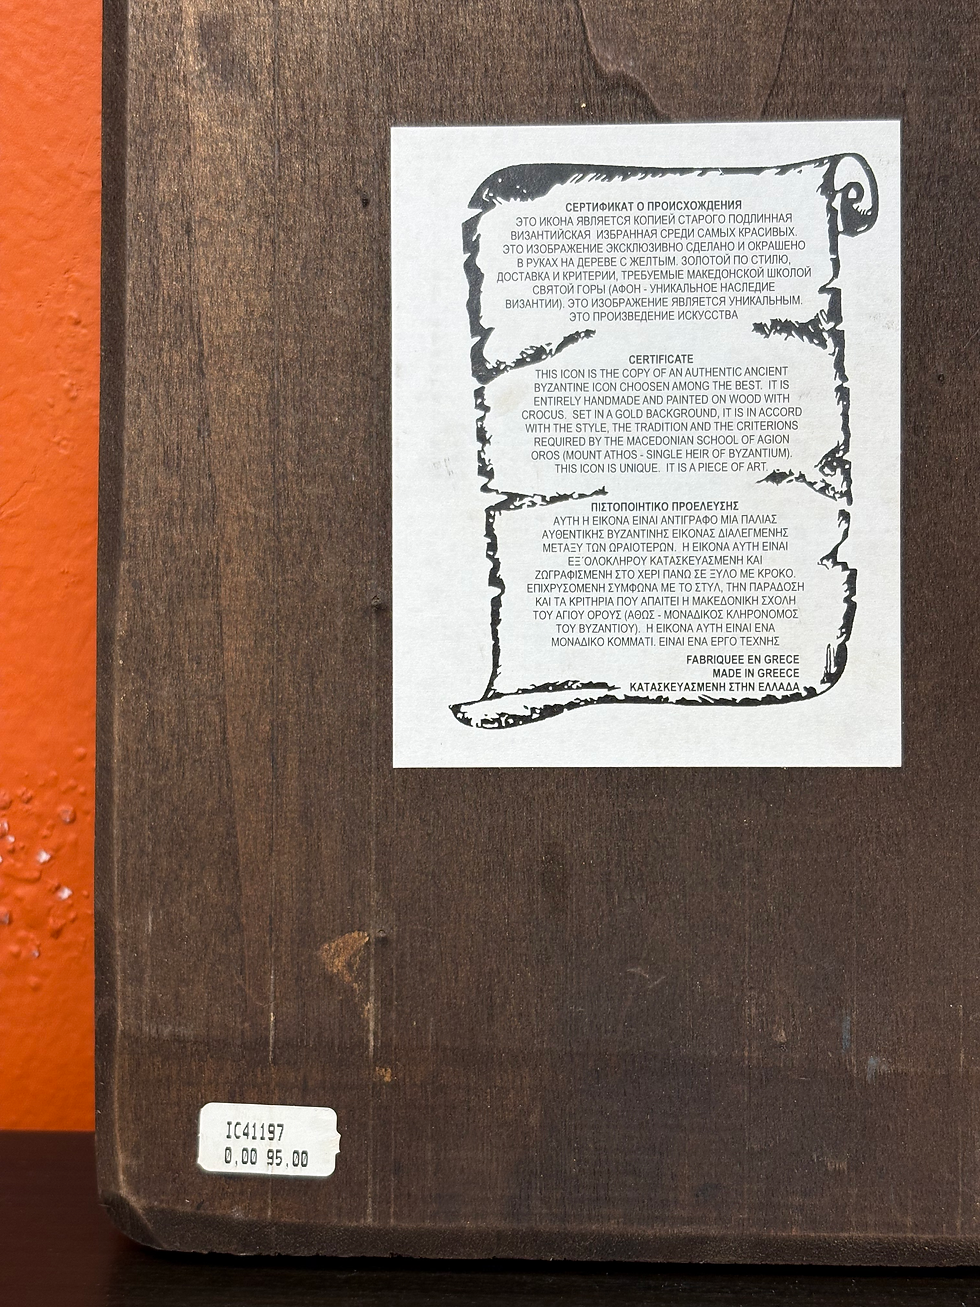 СЕРТИФИКАТ О ПРОИСХОЖДЕНИЯ
ЭТО ИКОНА ЯВЛЯЕТСЯ КОПИЕЙ СТАРОГО ПОДЛИННАЯ
ВИЗАНТИЙСКАЯ ИЗБРАННАЯ СРЕДИ САМЫХ КРАСИВЫХ.
ЭТО ИЗОБРАЖЕНИЕ ЭКСКЛЮЗИВНО СДЕЛАНО И ОКРАШЕНО
В РУКАХ НА ДЕРЕВЕ С ЖЕЛТЫМ. ЗОЛОТОЙ ПО СТИЛЮ,
ДОСТАВКА И КРИТЕРИИ, ТРЕБУЕМЫЕ МАКЕДОНСКОЙ ШКОЛОЙ
СВЯТОЙ ГОРЫ (АФОН - УНИКАЛЬНОЕ НАСЛЕДИЕ
ВИЗАНТИИ). ЭТО ИЗОБРАЖЕНИЕ ЯВЛЯЕТСЯ УНИКАЛЬНЫМ.
ЭТО ПРОИЗВЕДЕНИЕ ИСКУССТВА
CERTIFICATE
THIS ICON IS THE COPY OF AN AUTHENTIC ANCIENT
BYZANTINE ICON CHOOSEN AMONG THE BEST. IT IS
ENTIRELY HANDMADE AND PAINTED ON WOOD WITH
CROCUS. SET IN A GOLD BACKGROUND, IT IS IN ACCORD
WITH THE STYLE, THE TRADITION AND THE CRITERIONS
REQUIRED BY THE MACEDONIAN SCHOOL OF AGION
OROS (MOUNT ATHOS - SINGLE HEIR OF BYZANTIUM).
THIS ICON IS UNIQUE. IT IS A PIECE OF ART.
ΠΙΣΤΟΠΟΙΗΤΙΚΟ ΠΡΟΕΛΕΥΣΗΣ
ΑΥΤΗ Η ΕΙΚΟΝΑ ΕΙΝΑΙ ΑΝΤΙΓΡΑΦΟ ΜΙΑ ΠΑΛΙΑΣ
ΑΥΘΕΝΤΙΚΗΣ ΒΥΖΑΝΤΙΝΗΣ ΕΙΚΟΝΑΣ ΔΙΑΛΕΓΜΕΝΗΣ
ΜΕΤΑΞΥ ΤΩΝ ΩΡΑΙΟΤΕΡΩΝ. Η ΕΙΚΟΝΑ ΑΥΤΗ ΕΙΝΑΙ
ΕΞ΄ΟΛΟΚΛΗΡΟΥ ΚΑΤΑΣΚΕΥΑΣΜΕΝΗ ΚΑΙ
ΖΩΓΡΑΦΙΣΜΕΝΗ ΣΤΟ ΧΕΡΙ ΠΑΝΩ ΣΕ ΞΥΛΟ ΜΕ ΚΡΟΚΟ.
ΕΠΙΧΡΥΣΟΜΕΝΗ ΣΥΜΦΩΝΑ ΜΕ ΤΟ ΣΤΥΛ, ΤΗΝ ΠΑΡΑΔΟΣΗ
ΚΑΙ ΤΑ ΚΡΙΤΗΡΙΑ ΠΟΥ ΑΠΑΙΤΕΙ Η ΜΑΚΕΔΟΝΙΚΗ ΣΧΟΛΗ
ΤΟΥ ΑΓΙΟΥ ΟΡΟΥΣ (ΑΘΩΣ - ΜΟΝΑΔΙΚΟΣ ΚΛΗΡΟΝΟΜΟΣ
ΤΟΥ ΒΥΖΑΝΤΙΟΥ). Η ΕΙΚΟΝΑ ΑΥΤΗ ΕΙΝΑΙ ΕΝΑ
ΜΟΝΑΔΙΚΟ ΚΟΜΜΑΤΙ. ΕΙΝΑΙ ΕΝΑ ΕΡΓΟ ΤΕΧΝΗΣ
FABRIQUEE EN GRECE
MADE IN GREECE
ΚΑΤΑΣΚΕΥΑΣΜΕΝΗ ΣΤΗΝ ΕΛΛΑΔΑ
IC41197
0,00 95,00